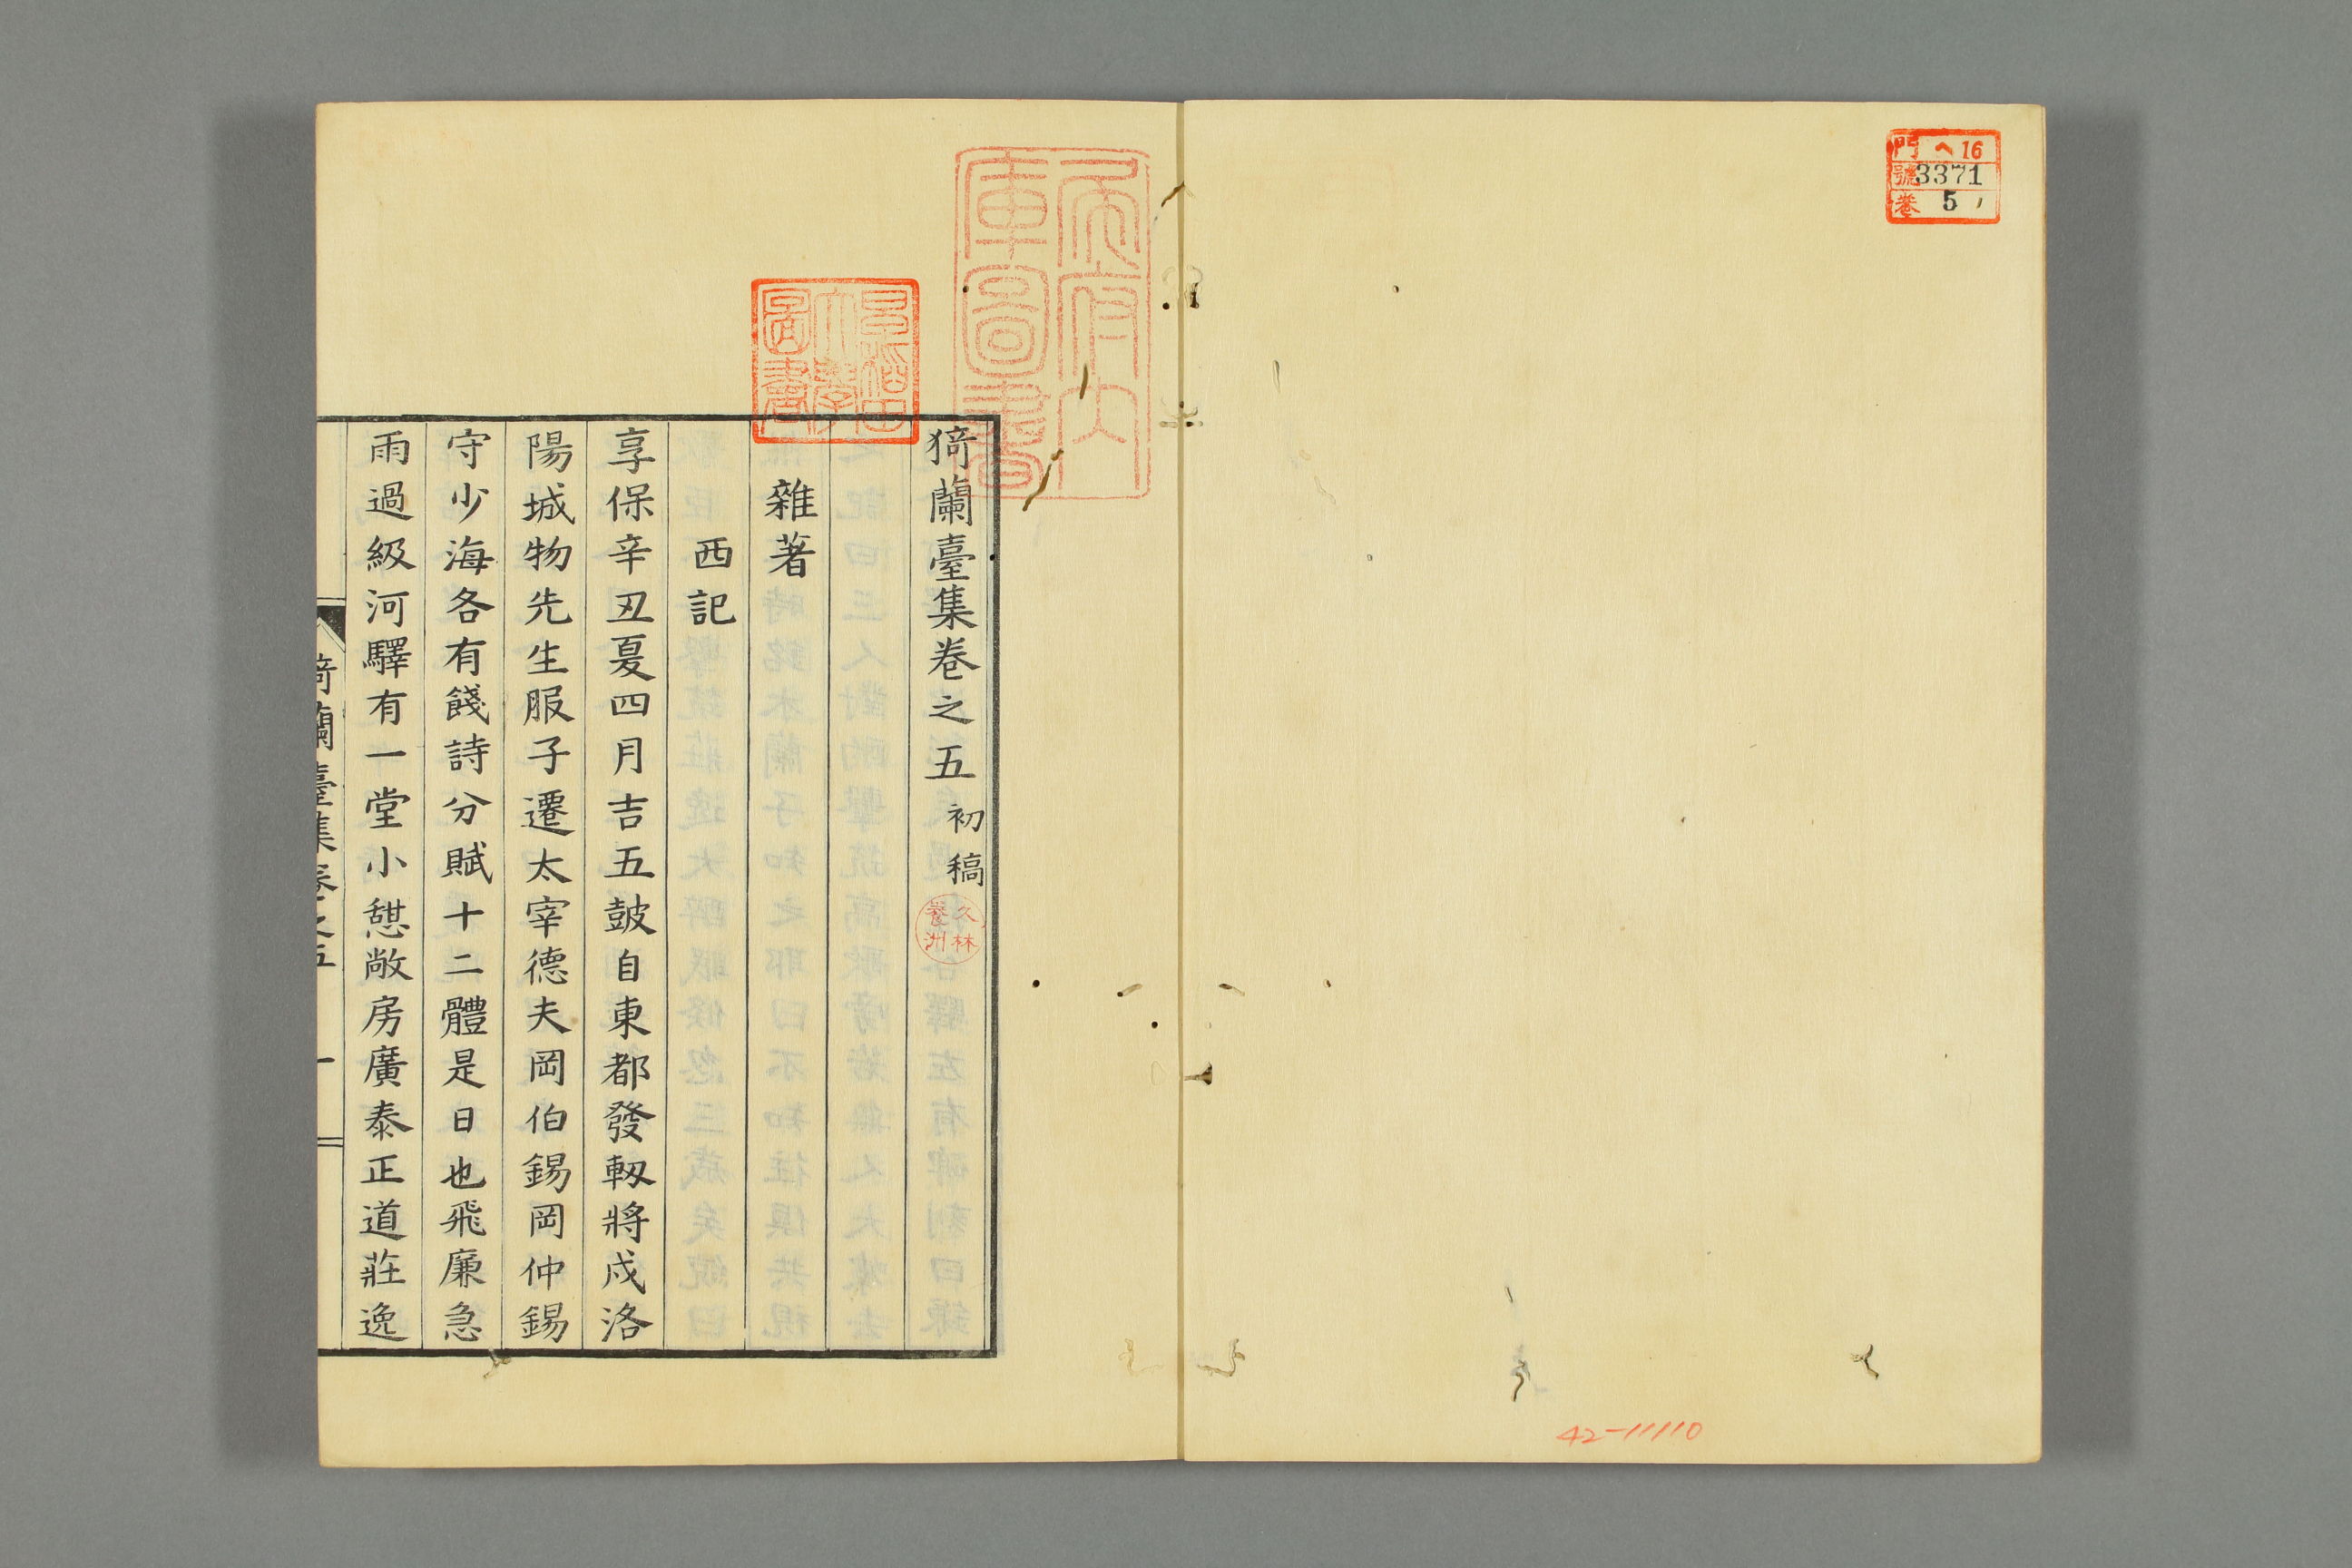 門 ヘ16
號 3371
卷 5
42-11110
猗蘭臺集卷之五 初稿
久林
養洲
雜著
西記
享保辛丑夏四月吉五皷自東都發軔將戍洛
陽城物先生服子遷太宰德夫岡伯錫岡仲錫
守少海各有餞詩分賦十二體是日也飛廉急
雨過級河驛有一堂小憇敞房廣泰正道莊逸
猗蘭臺集卷之五 一
早稻田
大學
圖書